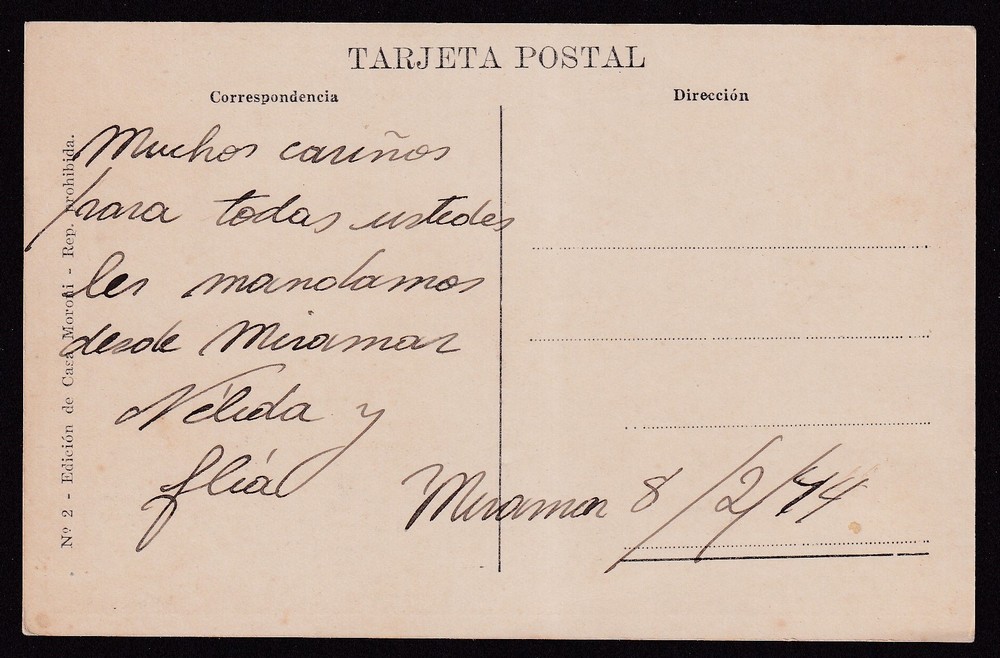 TARJETA POSTAL
Correspondencia
Dirección
Muchos cariños
para todas ustedes
les mandamos
desde Miramar
Nélida y
flia
Miramar 8/2/44
Nº 2 - Edición de Casa Moroni - Rep. prohibida.